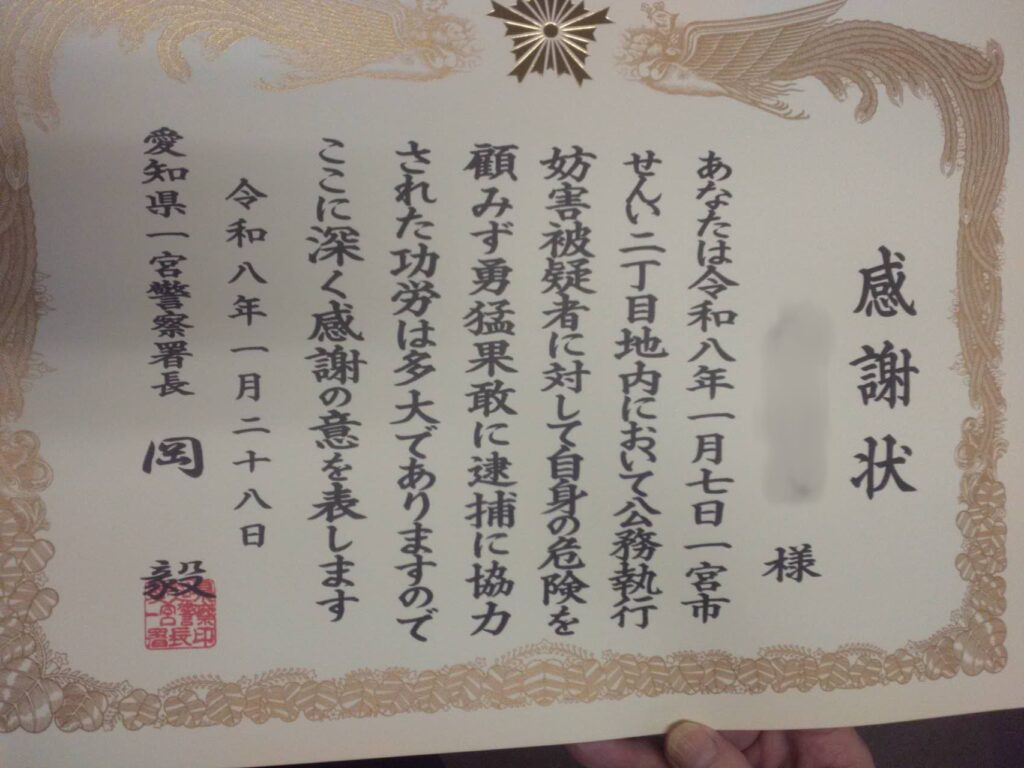 感謝状
様
あなたは令和八年一月七日一宮市
せんい二丁目地内において公務執行
妨害被疑者に対して自身の危険を
顧みず勇猛果敢に逮捕に協力
された功労は多大でありますので
ここに深く感謝の意を表します
令和八年一月二十八日
愛知県一宮警察署長 岡 毅